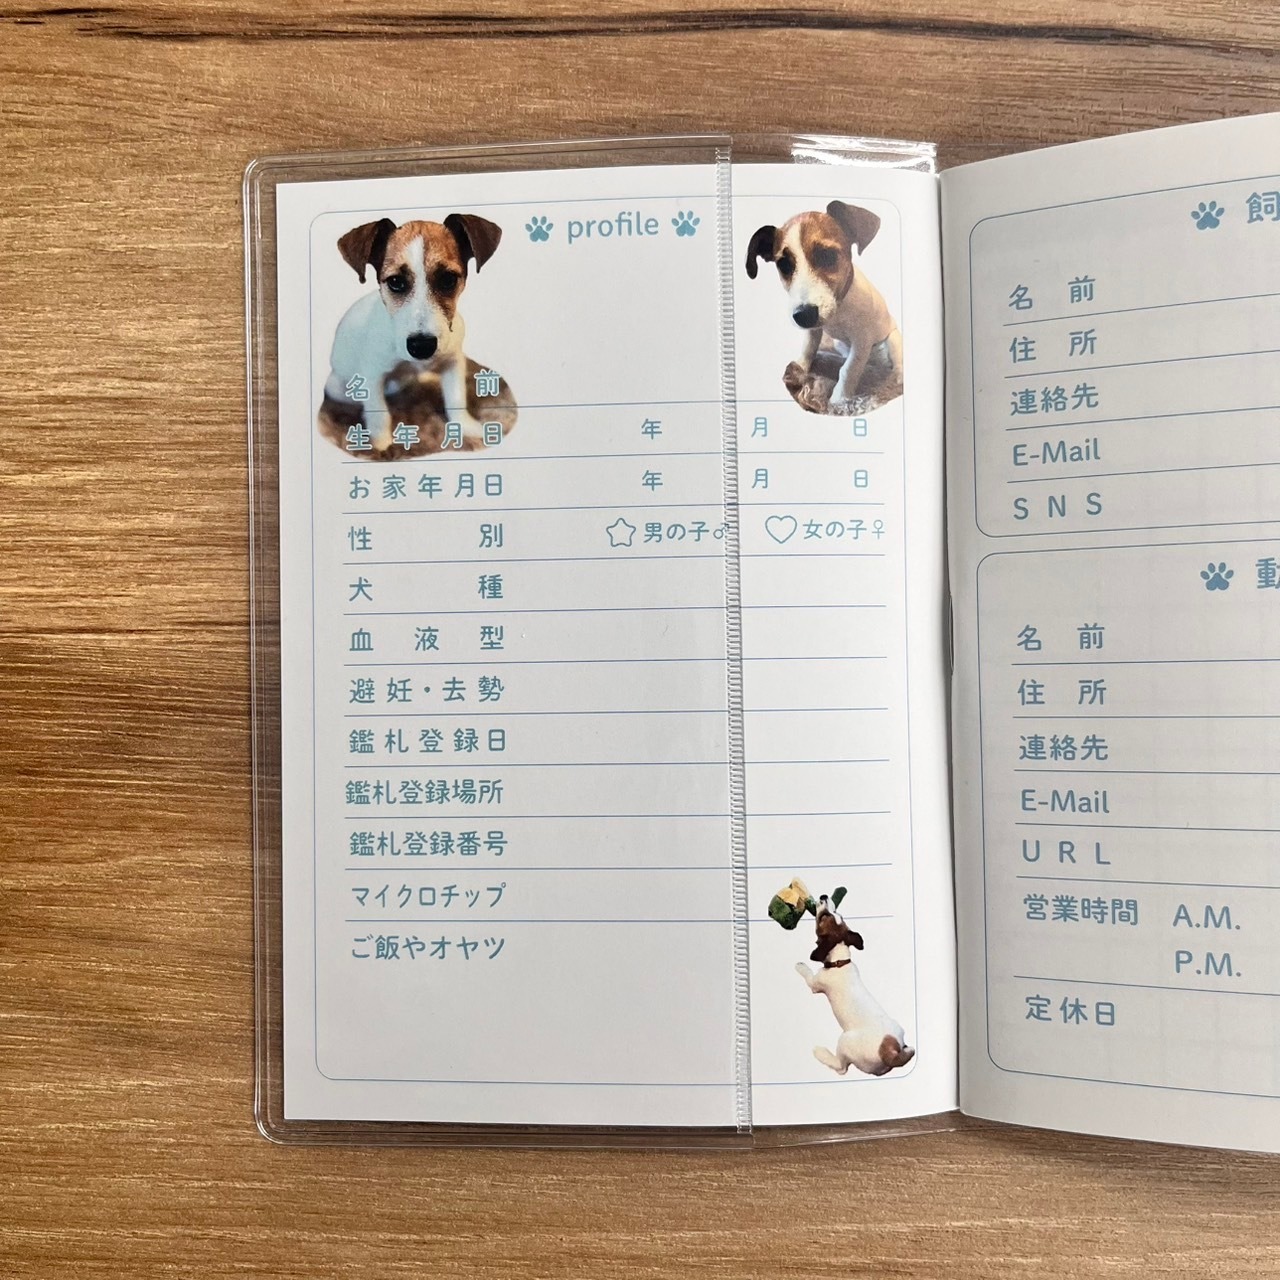 profile
名前
生年月日 年 月 日
お家年月日 年 月 日
性別 男の子♂ 女の子♀
犬種
血液型
避妊・去勢
鑑札登録日
鑑札登録場所
鑑札登録番号
マイクロチップ
ご飯やオヤツ
飼
名前
住所
連絡先
E-Mail
SNS
動
名前
住所
連絡先
E-Mail
URL
営業時間 A.M.
P.M.
定休日